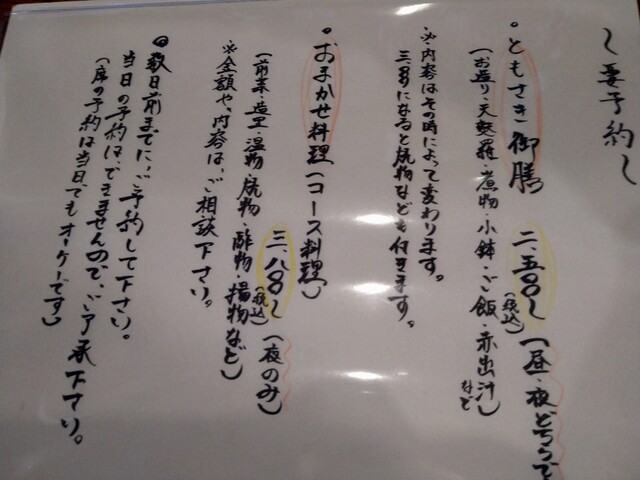 〜要予約〜
・ともさき御膳 二、五〇〇〜(税込)(昼・夜どちらで
(お造り・天麩羅・煮物・小鉢・ご飯・赤出汁など)
※内容はその時によって変わります。
三、〇〇〇になると焼物なども付きます。
・おまかせ料理(コース料理) 三、八〇〇〜(税込)(夜のみ)
(前菜・造里・温物・焼物・酢物・揚物など)
※金額や、内容は、ご相談下さい。
◎数日前までに、ご予約して下さい。
当日の予約は、できませんので、ご了承下さい。
(席の予約は当日でもオーケーです)